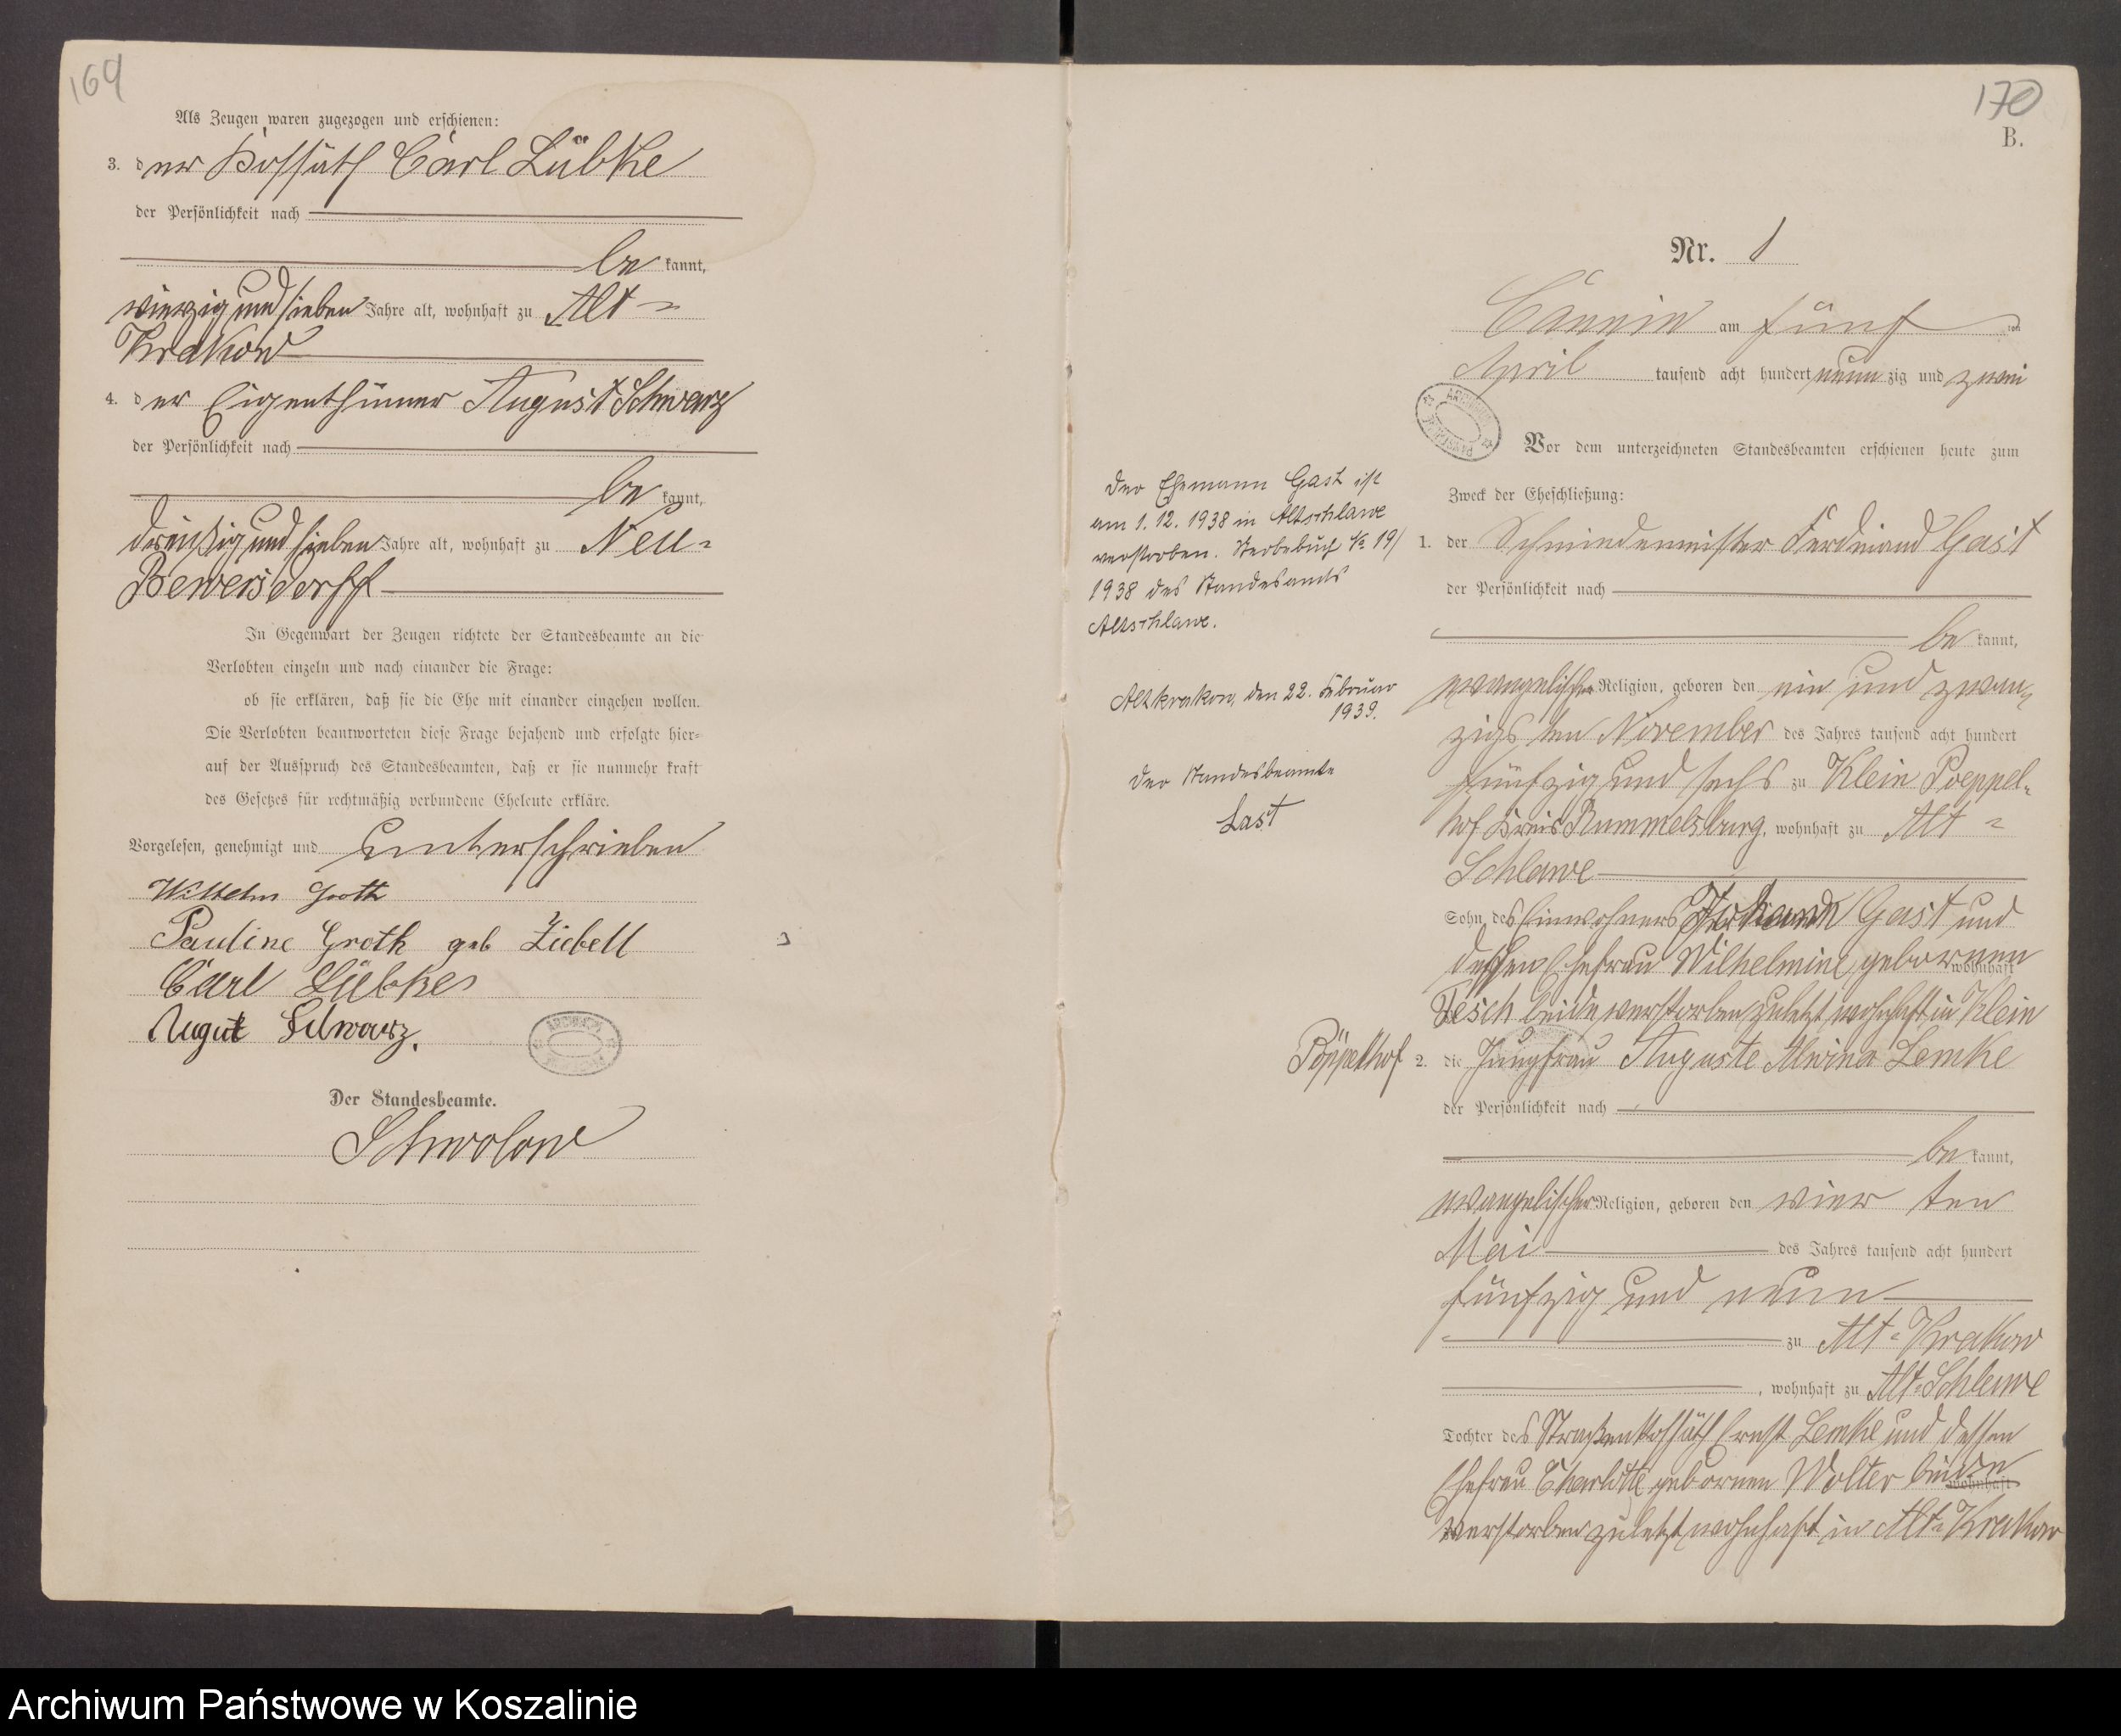 169
Als Zeugen waren zugezogen und erschienen:
3. der Kossäth Carl Lübke
der Persönlichkeit nach
be kannt,
vierzig und sieben Jahre alt, wohnhaft zu Alt-
Krakow
4. der Eigenthümer August Schwarz
der Persönlichkeit nach
be kannt,
dreißig und sieben Jahre alt, wohnhaft zu Neu-
Bewersdorff
In Gegenwart der Zeugen richtete der Standesbeamte an die
Verlobten einzeln und nach einander die Frage:
ob sie erklären, daß sie die Ehe mit einander eingehen wollen.
Die Verlobten beantworteten diese Frage bejahend und erfolgte hier-
auf der Ausspruch des Standesbeamten, daß er sie nunmehr kraft
des Gesetzes für rechtmäßig verbundene Eheleute erkläre.
Vorgelesen, genehmigt und unterschrieben
Wilhelm Groth
Pauline Groth geb Ziebell
Carl Lübke
August Schwarz.
Der Standesbeamte.
Schwolow
170
B.
Nr. 1
Cannin am fünf ten
April tausend acht hundert neun zig und zwei
Vor dem unterzeichneten Standesbeamten erschienen heute zum
Zweck der Eheschließung:
1. der Schmiedemeister Ferdinand Gast
der Persönlichkeit nach
be kannt,
evangelischer Religion, geboren den ein und zwan-
zigs ten November des Jahres tausend acht hundert
fünfzig und sechs zu Klein Poeppel-
hof Kreis Rummelsburg, wohnhaft zu Alt-
Schlawe
Sohn des Einwohners Gast und
dessen Ehefrau Wilhelmine, gebornen
wohnhaft
Tesch beide verstorben zuletzt wohnhaft in Klein
Pöppelhof
2. die Jungfrau Auguste Alwine Lemke
der Persönlichkeit nach
be kannt,
evangelischer Religion, geboren den vier ten
Mai des Jahres tausend acht hundert
fünfzig und neun
zu Alt-Krakow
, wohnhaft zu Alt-Schlawe
Tochter des Straßenkossäth Ernst Lemke und dessen
Ehefrau Charlotte gebornen Wolter beide
wohnhaft
verstorben zuletzt wohnhaft in Alt-Krakow
Der Ehemann Gast ist
am 1.12.1938 in Altschlawe
verstorben. Sterbebuch Nr. 19/
1938 des Standesamts
Altschlawe.
Altkrakow, den 22. Februar
1939.
Der Standesbeamte
Last
Archiwum Państwowe w Koszalinie